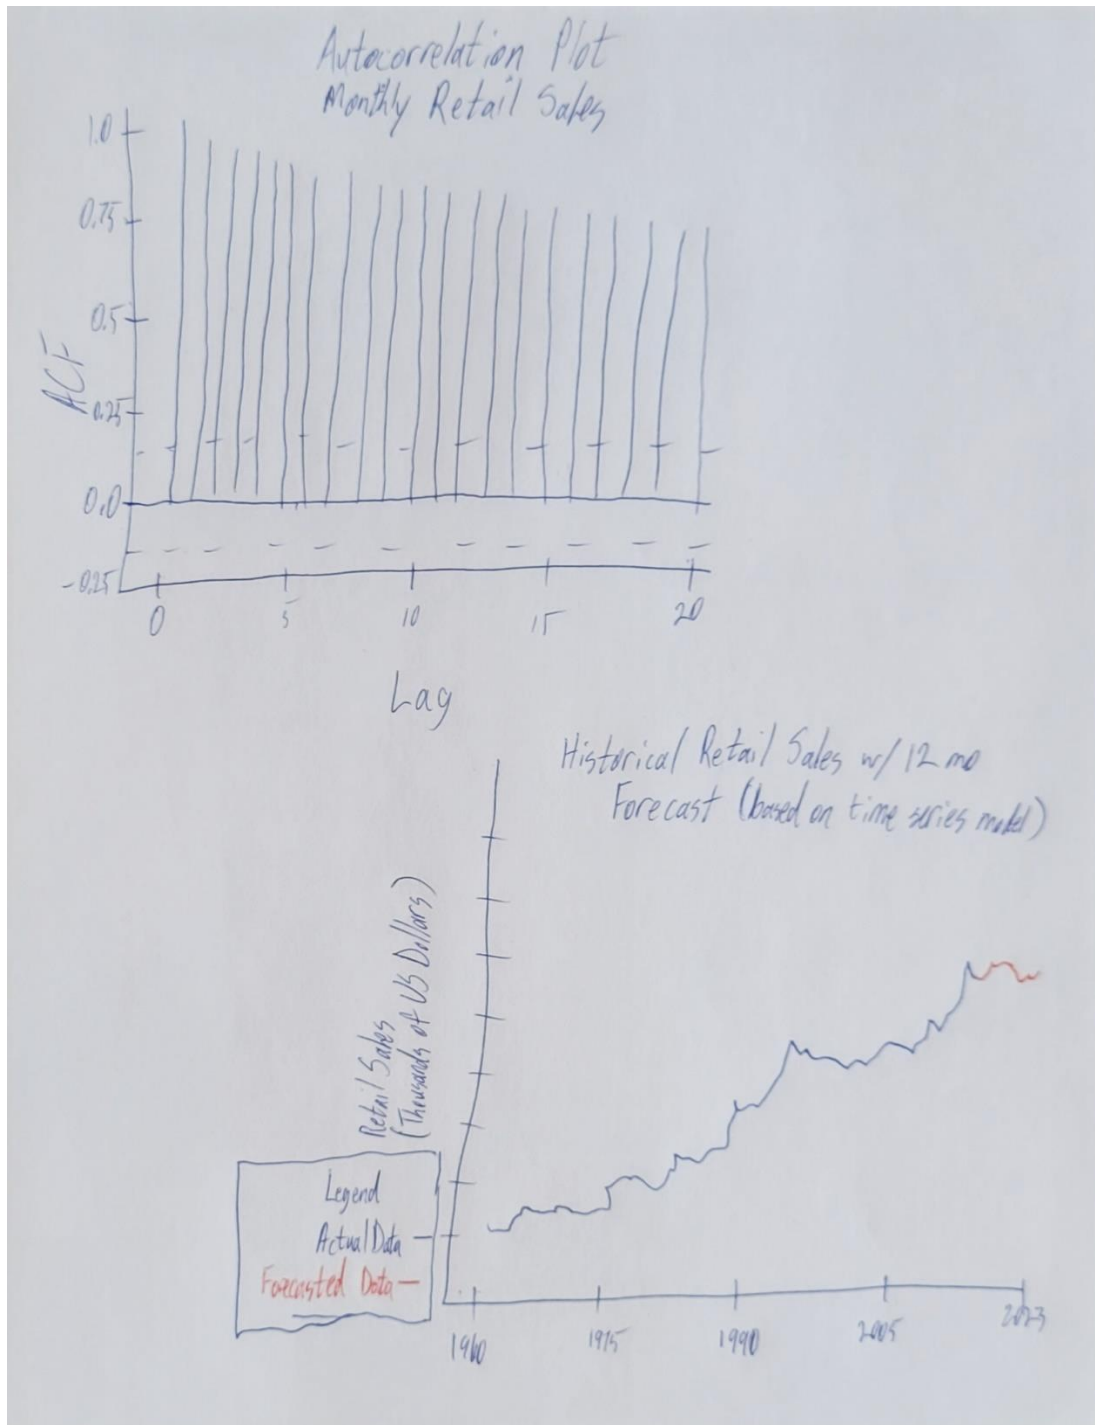 Autocorrelation Plot
Monthly Retail Sales
1.0
0.75
0.5
0.25
0.0
-0.25
ACF
0
5
10
15
20
Lag
Historical Retail Sales w/ 12 mo
Forecast (based on time series model)
Retail Sales
(Thousands of US Dollars)
Legend
Actual Data
Forecasted Data
1960
1975
1990
2005
2023